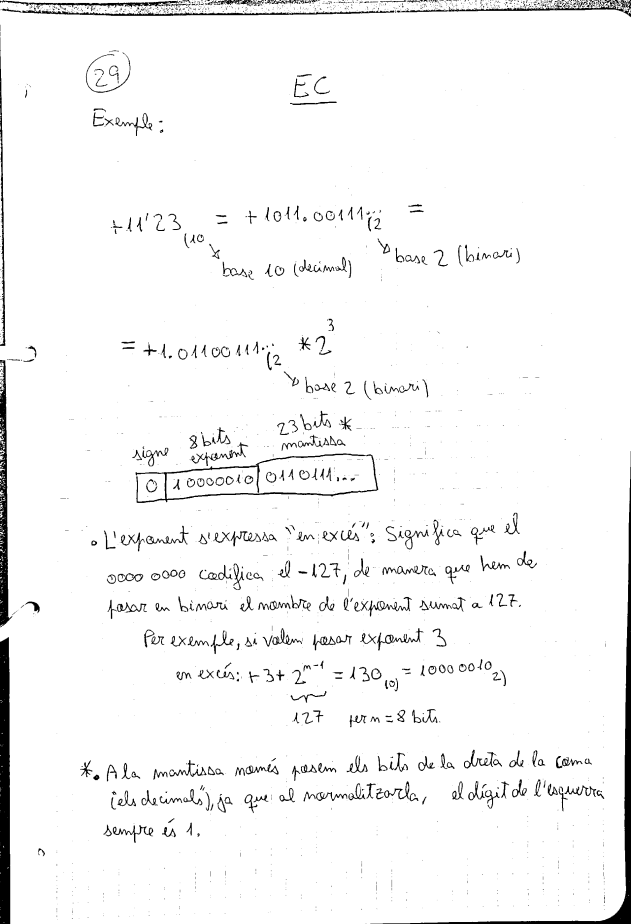 29
EC
Exemple:
+11'23 (10 = +1011.00111... (2 =
base 10 (decimal)
base 2 (binari)
= +1.01100111... (2 * 2^3
base 2 (binari)
signe 8 bits exponent 23 bits * mantissa
0 10000010 0110111...
• L'exponent s'expressa "en excés": Significa que el
0000 0000 codifica el -127, de manera que hem de
posar en binari el nombre de l'exponent sumat a 127.
Per exemple, si volem posar exponent 3
en excés: +3+ 2^n-1 = 130 (0) = 1000 0010 2)
127 per n = 8 bits.
*. A la mantissa només posem els bits de la dreta de la coma
("els decimals"), ja que al normalitzarla, el dígit de l'esquerra
sempre és 1.